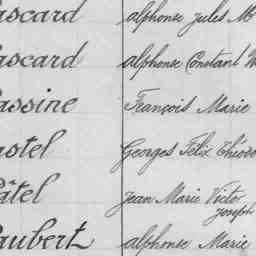 ascard alphonse Jules M
ascard alphonse Constant
assine François Marie
astel Georges Félix Théodo
âtel Jean Marie Victo
Joseph
aubert alphonse Marie